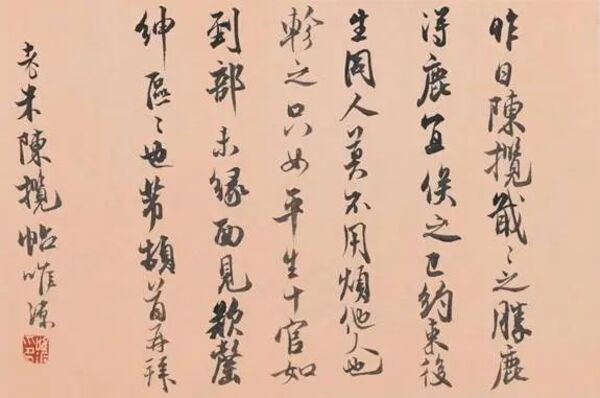 昨日陳攬戢〻之勝鹿
得鹿宜俟之已約束後
生同人莫不用煩他人也
軫之只如平生十官如
到部未緣面見罄
紳區〻也芾頓首再拜
老米陳攬帖唯